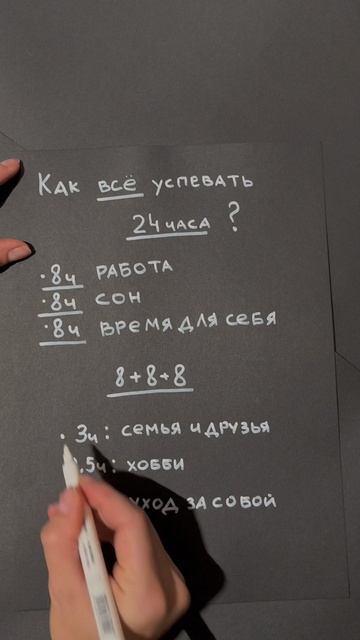 Как всё успевать
24 часа ?
·8ч работа
·8ч сон
·8ч время для себя
8+8+8
· 3ч: семья и друзья
.5ч: хобби
уход за собой